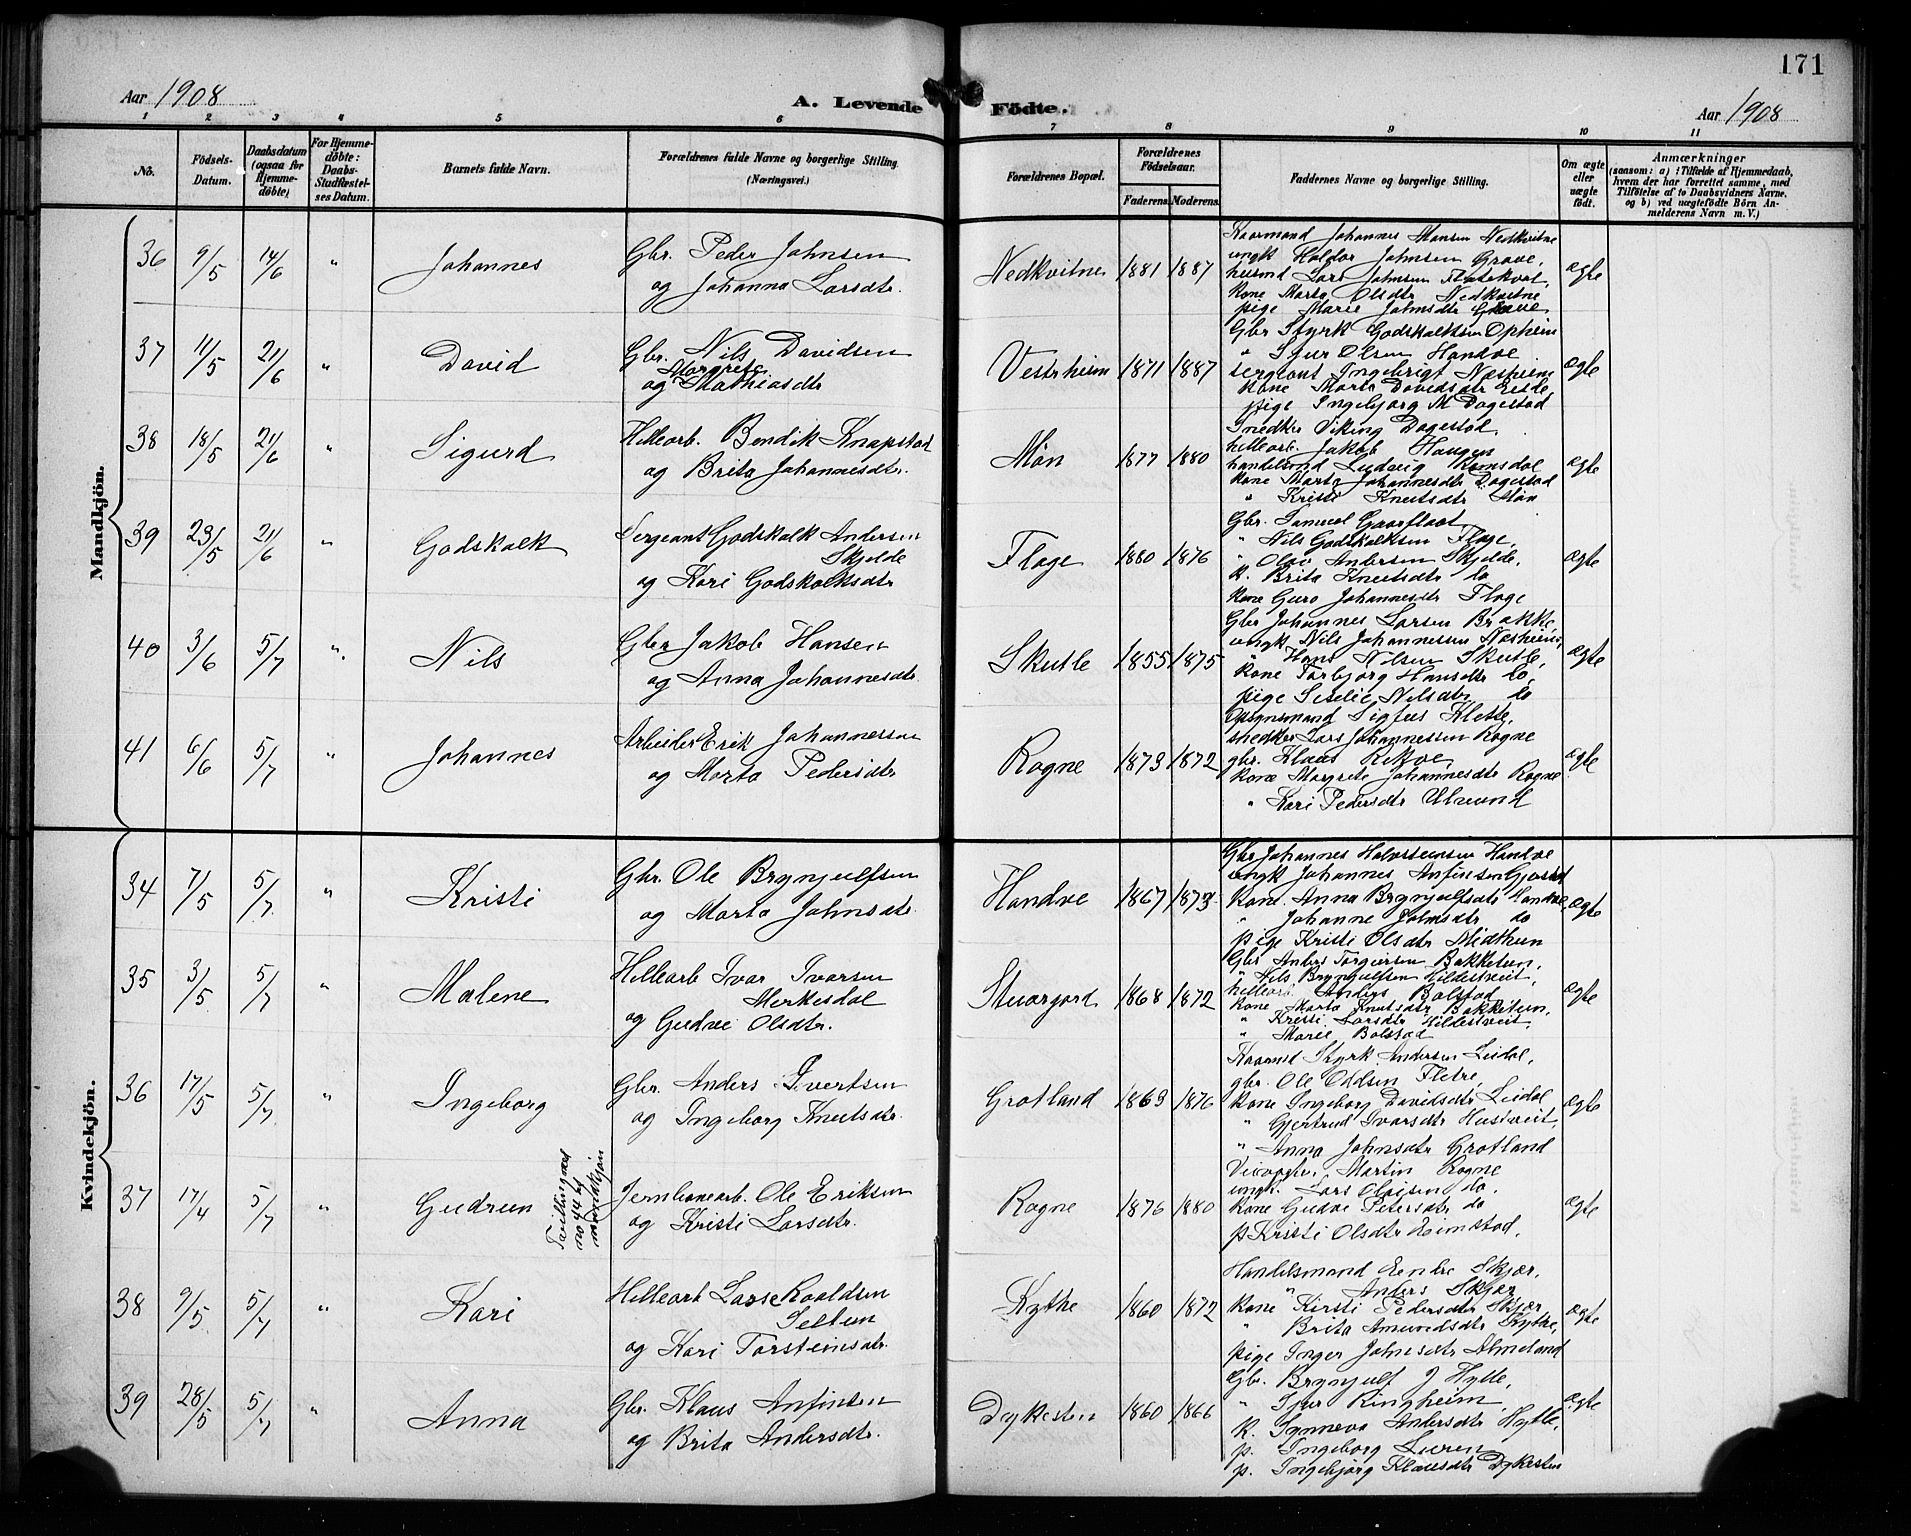 171
Aar 1908
A. Levende Fødte.
Aar 1908
1 2 3 4 5 6 7 8 9 10 11
No.
Födsels-Datum.
Daabsdatum (ogsaa for Hjemme-döbte)
For Hjemme-döbte: Daabs-Stadfæstel-ses Datum.
Barnets fulde Navn.
Forældrenes fulde Navne og borgerlige Stilling. (Næringsvei.)
Forældrenes Bopæl.
Forældrenes Födselsaar.
Faderens. Moderens.
Faddernes Navne og borgerlige Stilling.
Om ægte eller uægte født.
Anmærkninger
(saasom: a) i Tilfælde af Hjemmedaab,
hvem der har forrettet samme, med
Tilföielse af to Daabsvidners Navne,
og b) ved uægtefödte Börn An-
melderens Navn m. V.)
Mandkjön.
36 9/5 14/6 " Johannes
Gbr. Peder Johnsen
og Johanna Larsdtr.
Nedkvitne 1881 1887
Kaarmand Johannes Monsen Nedkvitne
ungk Haldor Johnsen Grove,
husmd Lars Johnsen
Kone Marta Olsdtr Nedkvitne
pige Marie Johnsdtr Grove
ægte
37 11/5 21/6 " David
Gbr. Nils Davidsen
Margrete
og Mathiasdtr
Vestrheim 1871 1887
Gbr Styrk Godskalksen Opheim
" Sjur Olsen Handve
sergeant Ingebrigt Næsheim
Kone Marta Davidsdtr
pige Ingebjorg M Dagestad
ægte
38 18/5 21/6 " Sigurd
Hellearb. Bendik Knapstad
og Brita Johannesdtr.
Møn 1877 1880
Snedker Viking Dagestad.
hellearb. Jakob Haugen
handelsmd Ludvig Romsdal
Kone Marta Johannesdtr Dagestad
" Kristi Knutsdtr Møn
ægte
39 23/5 21/6 " Godskalk
Sergeant Godskalk Andersen
Skjelde
og Kari Godskalksdtr
Flage 1880 1876
Gbr. Samuel
" Nils Godskalksen Flage,
" Olav Andersen Skjelde,
K. Brita Knutsdtr do
Kone Guro Johannesdtr Flage
ægte
40 3/6 5/7 " Nils
Gbr Jakob Hansen
og Anna Johannesdtr.
Skutle 1855 1875
Gbr Johannes Larsen Brække,
ungk Nils Johannessen Næsheim,
" Hans Nilsen Skutle,
Kone Torbjorg Hansdtr do,
pige Seselie Nilsdtr do
ægte
41 6/6 5/7 " Johannes
Arbeider Erik Johannessen
og Marta Pedersdtr
Rogne 1873 1872
Opsynsmand Sigfus Klette,
snedker Lars Johannessen Rogne
gbr. Klaus Rekve,
Kone Margrete Johannesdtr Rogne
" Kari Pedersdtr Ulvund
ægte
Kvindekjön.
34 7/5 5/7 " Kristi
Gbr. Ole Brynjulfsen
og Marta Johnsdtr.
Handve 1867 1873
Gbr Johannes Halvorsen Handve
ungk Johannes Anfinsen
Kone. Anna Brynjulfsdtr Handve,
" Johanne Johnsdtr do
pige Kristi Olsdtr Midthun
ægte
35 3/5 5/7 " Malene
Hellearb Ivar Ivarsen
Merkesdal
og Gudve Olsdtr.
1868 1872
Gbr Anders Torgersen Bakketun,
" Nils Brynjulfsen Hildestveit,
hellearb. Anders Bolstad
Kone Marta Knutsdtr Bakketun,
" Kristi Larsdtr Hildestveit
" Marie Bolstad
ægte
36 17/5 5/7 " Ingeborg
Gbr. Anders Ivertsen
og Ingeborg Knutsdtr.
Grotland 1863 1876
Kaarmd Styrk Andersen Lidal,
gbr. Ole Oddsen Fletre,
Kone Ingeborg Davidsdtr Lidal
" Gjertrud Ivarsdtr Hustveit
" Anna Johnsdtr Grotland
ægte
37 17/4 5/7 " Gudrun
Tvilling med
no 44 af
mandkjøn
Jernbanearb. Ole Eriksen
og Kristi Larsdtr.
Rogne 1876 1880
Martin Rogne
ungk. Lars Olsen do.
Kone Gudve Petersdtr do
p Kristi Olsdtr Eimstad,
ægte
38 9/5 5/7 " Kari
Hellearb Lasse Roaldsen
Seltun
og Kari Torsteinsdtr.
Kythe 1860 1872
Handelsmand Endre Skjær,
" Anders Skjær
Kone Kirsti Pedersdtr Skjær
" Brita Amundsdtr Kythe,
pige Inger Johnsdtr Almeland
ægte
39 28/5 5/7 " Anna
Gbr. Klaus Anfinsen
og Brita Andersdtr.
Dykesten 1860 1866
Gbr. Brynjulf J Hylle,
" Sjur Ringheim,
K. Synneva Andersdtr Hylle,
p. Ingeborg
p. Ingebjorg Klausdtr Dykesten
ægte